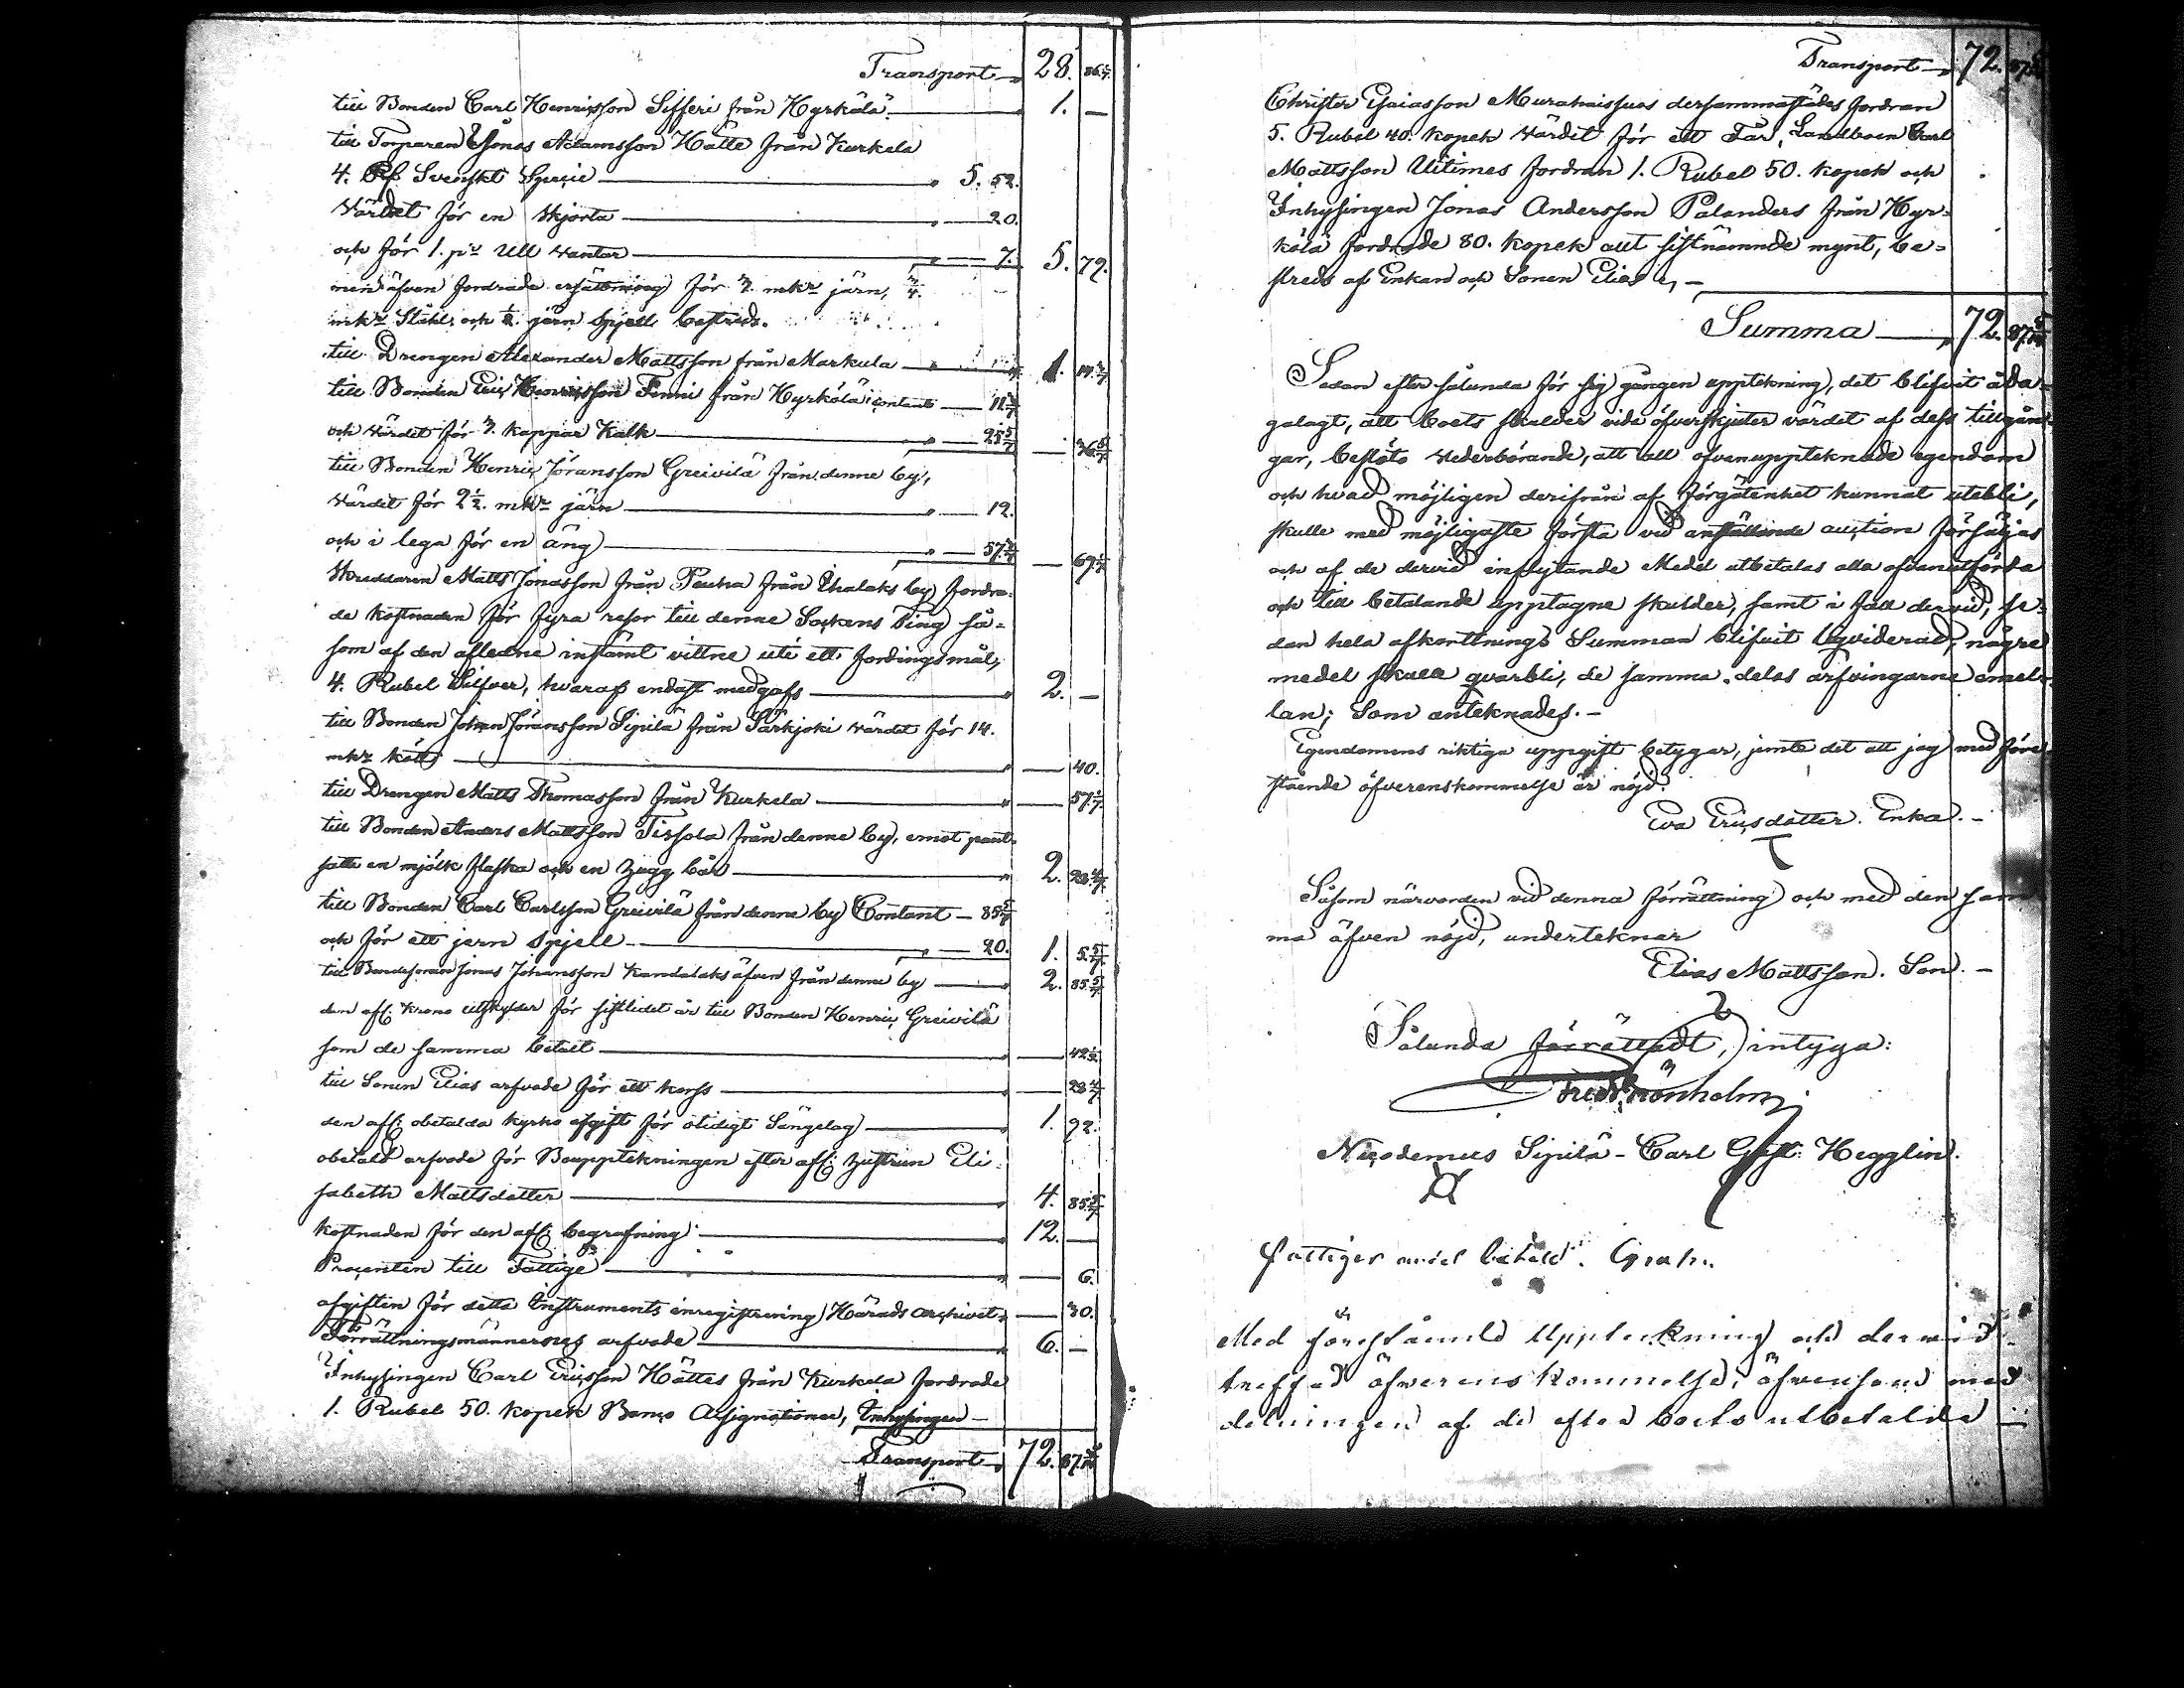 Transport 28.
till Bonden Carl Henricsson Sifferi från Kyrkölä 1. —
till Torparen Jonas Adamsson Hätte från Kurkela
4. Svenskt Specie 5. 52.
Värdet för en Skjorta 20.
och för 1. pr Ull vantar 7. 5. 79.
men äfven fordrade ersättning för 3. mkr järn, 3/4.
mkr Stähl, och järn Spjell, bestreds.
till Drengen Alexander Mattsson från Markula 1. 14 2/7
till Bonden Eric Henricsson Finni från Kyrkölä contant 11 3/7
och värdet för 3. kappar Kalk 25 5/7
till Bonden Henric Jöransson Greivilä från denne by,
värdet för 2 1/2. mkr järn 12.
och i lega för en äng 57 1/7 — 69 1/7
Skreddaren Matts Jonasson från Peuha från Ihalaks by fordra-
de kostnaden för fyra resor till denne Sockens Ting så-
som af den afledne instämt vittne uti ett fordringsmål,
4. Rubel Silfver, hvaraf endast medgafs 2. —
till Bonden Johan Jöransson Sipilä från Särkjoki värdet för 14.
mkr kött — 40.
till Drengen Matts Thomasson från Kurkela — 57 1/7
till Bonden Anders Mattsson Tissola från denne by, emot pant-
satte en mjölk flaska och en bår 2. 28 4/7
till Bonden Carl Carlsson Greivilä från denne by Contant — 85 5/7
och för ett jern spjell 20. 1. 5 5/7
till Bondesonen Jonas Johansson Kandalaks äfven från denne by 2. 85 5/7
den afl: Krono utskylder för sistlidet år till Bonden Henric Greivilä
som de samma betalt
till Sonen Elias arfvode för ett korss — 28 4/7
den afl: obetalda kyrko afgift för otidigt Sängelag 1. 92.
obetald arfvode för Bouppteckningen efter afl: hustrun Eli-
sabeth Mattsdotter 4. 85 5/7
kostnaden för den afl: begrafning 12. —
Procenten till Fattige — 6.
afgiften för detta Instruments inregistrering i Härads archivet — 30.
Förrättningsmännernes arfvode 6. —
Inhysingen Carl Ericsson Hättes från Kurkela fordrade
1. Rubel 50. kopek Banco Assignationer, Inhysingen —
Transport 72.
Transport 72.
Christer Esaiasson Murahaisuos dersammastädes fordran
5. Rubel 40. kopek värdet för ett Får, Landboen Carl
Mattsson Uitimes fordran 1. Rubel 50. kopek och
Inhysingen Jonas Andersson Palanders från Kyr-
kölä fordrade 80. kopek allt sistnämnde mynt, be-
streds af Enkan och Sonen Elias, —
Summa 72.
Sedan efter sålunda för sig gången uppteckning, det blifvit åda-
galagt, att boets skulder vida öfverskjuter värdet af dess tillgån-
gar, beslöto vederbörande, att all ofvanuppteknade egendom
och hvad möjligen derifrån af förgätenhet kunnat utebli,
skulle med möjligaste första vid anställande auction försäljas
och af de dervid inflytande Medel utbetalas alla ofvanutförda
och till betalande upptagne skulder, samt i fall dervid, se-
dan hela afkorttnings Summan blifvit liqviderad, någre
medel skulle qvarbli, de samma delas arfvingarne emel-
lan; Som anteknades. —
Egendomens riktiga uppgift betygar, jemte det att jag med före-
stående öfverenskommelse är nöjd.
Eva Ericsdotter. Enka. —
Såsom närvarden vid denna förrättning och med den sam-
ma äfven nöjd, underteknar
Elias Mattsson. Son. —
Sålunda förrättadt, intyga:
Nicodemus Sipilä — Carl Gust: Hegglin.
fattiges andel betald.
Med förestående Uppteckning och dervid
träffad öfverenskommelse, äfvensom med
delningen af de efter boets utbetalde